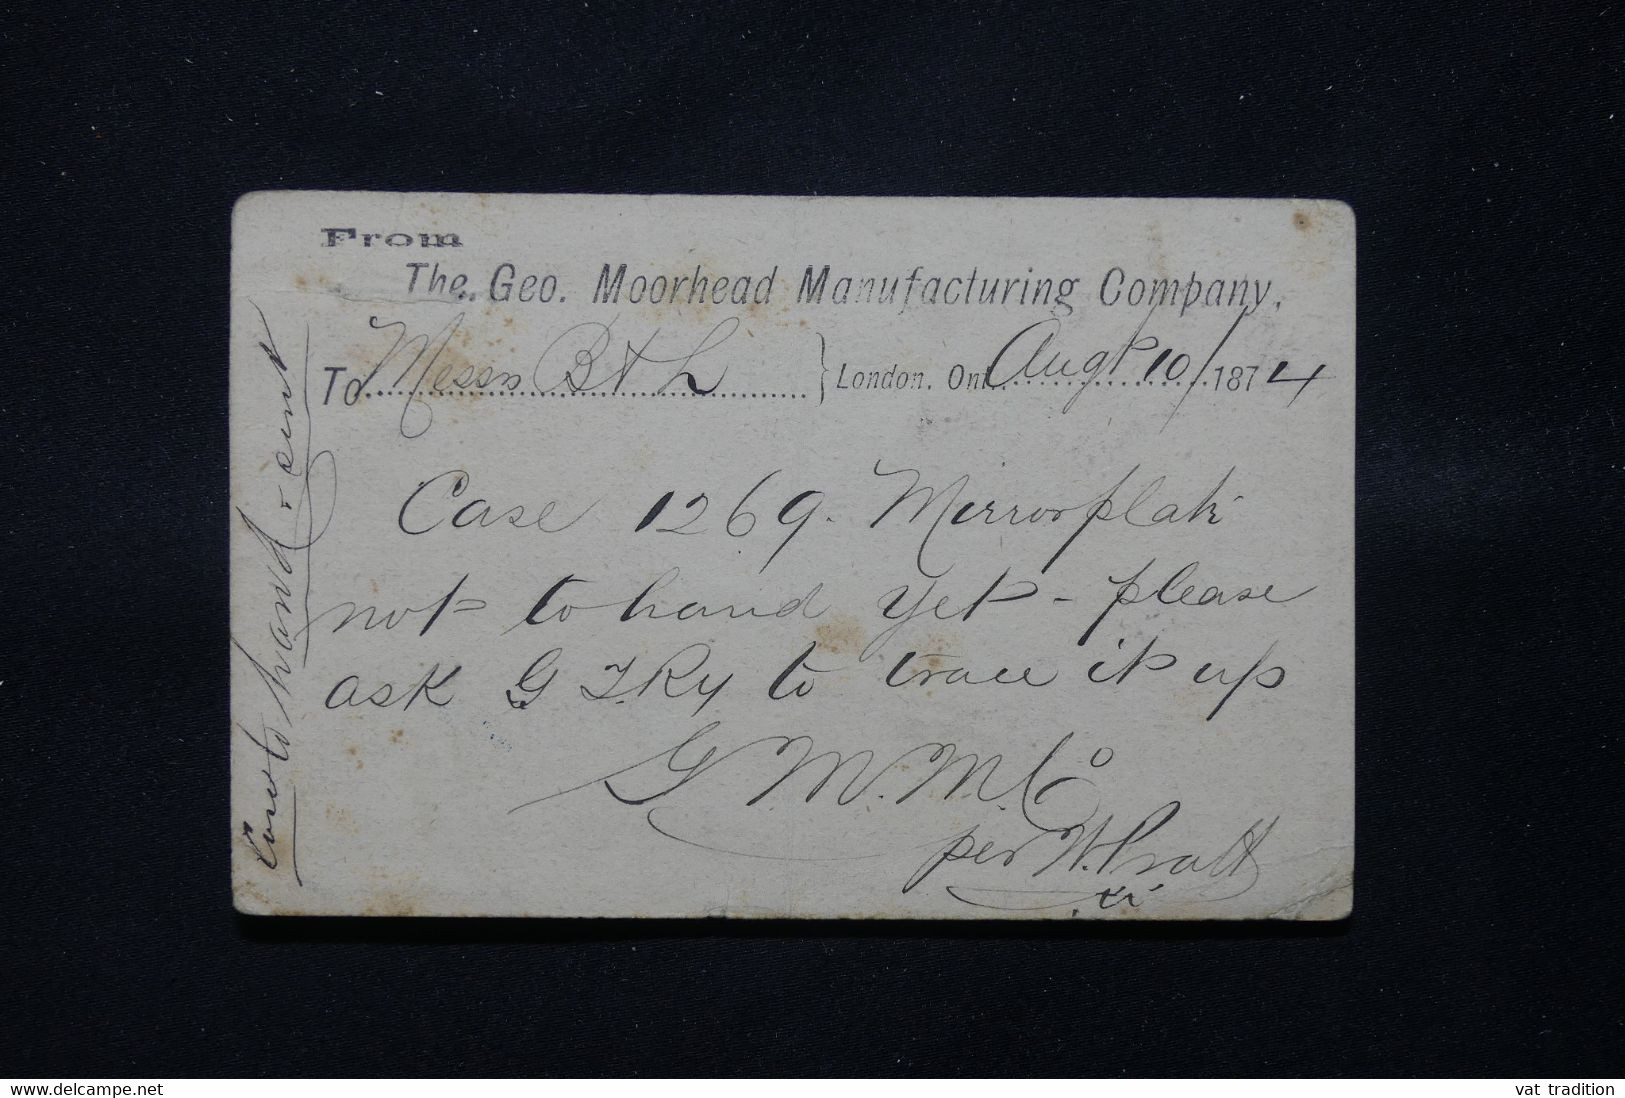 From
The Geo. Moorhead Manufacturing Company,
To Messrs B & L } London, Ont. Augt 10/ 1874
Case 1269. Mirrorplate
not to hand yet - please
ask G T Ry to trace it up
G M. M. Co
per W. Pratt
to hand & sent
www.delcampe.net
vat_tradition